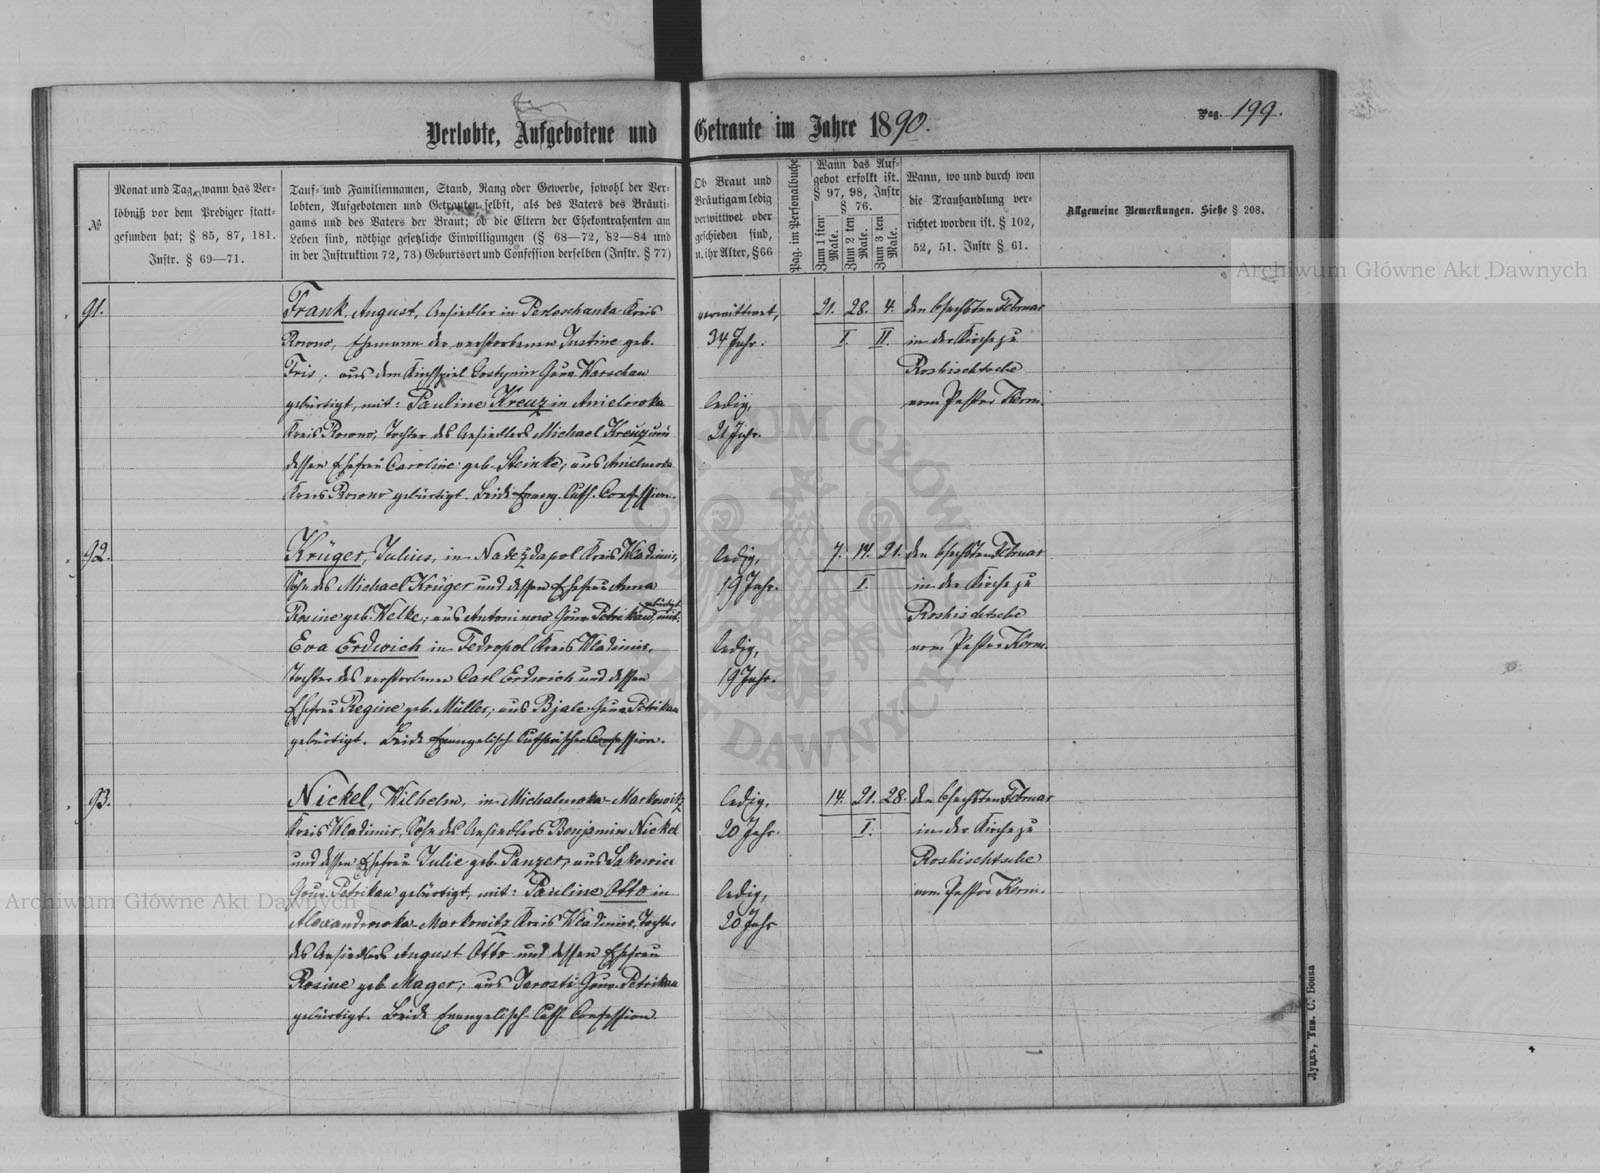 Verlobte, Aufgebotene und Getraute im Jahre 1890.
Pag. 199.
№
Monat und Tag, wann das Ver-
löbniß vor dem Prediger statt-
gefunden hat; § 85, 87, 181.
Instr. § 69—71.
Tauf- und Familiennamen, Stand, Rang oder Gewerbe, sowohl der Ver-
lobten, Aufgebotenen und Getrauten selbst, als des Vaters des Bräuti-
gams und des Vaters der Braut; ob die Eltern der Ehekontrahenten am
Leben sind, nöthige gesetzliche Einwilligungen (§ 68—72, 82—84 und
in der Instruktion 72, 73) Geburtsort und Confession derselben (Instr. § 77)
Ob Braut und
Bräutigam ledig
verwittwet oder
geschieden sind,
u. ihr Alter, § 66
Pag. im Personalbuche
Wann das Auf-
gebot erfolkt ist.
§ 97, 98, Instr
§ 76.
Zum 1 sten Male.
Zum 2 ten Male.
Zum 3 ten Male.
Wann, wo und durch wen
die Trauhandlung ver-
richtet worden ist. § 102,
52, 51. Instr § 61.
Allgemeine Bemerkungen. Siehe § 208.
91.
Frank, August, Ansiedler in Perloschanka Kreis
Rowno, Ehemann der verstorbenen Justine geb.
Fris, aus dem Kirchspiel Gostynin Gouv. Warschau
gebürtigt, mit: Pauline Kreuz in Anielowka
Kreis Rowno, Tochter des Ansiedlers Michael Kreuz und
dessen Ehefrau Caroline geb. Steinke, aus Anielowka
Kreis Rowno gebürtigt. Beide Evang. Luth. Confession.
verwittwet,
34 Jahr.
ledig,
21 Jahr.
21. 28. 4.
I. II.
den 6 sechsten Februar
in der Kirche zu
Roshischtsche
vom Pastor Kerm.
92.
Krüger, Julius, in Nadezdapol Kreis Wladimir,
Sohn des Michael Krüger und dessen Ehefrau Anna
Rosine geb. Welke, aus Antoninow Gouv. Petrikau gebürtigt, mit:
Eva Erdwich in Fedropol Kreis Wladimir,
Tochter des verstorbenen Carl Erdwich und dessen
Ehefrau Regine geb. Müller, aus Bjale Gouv. Petrikau
gebürtigt. Beide Evangelisch Lutherischer Confession.
ledig,
19 Jahr.
ledig,
19 Jahr.
7. 14. 21.
I.
den 6 sechsten Februar
in der Kirche zu
Roshischtsche
vom Pastor Kerm.
93.
Nickel, Wilhelm, in Michalowka-Markowitz
Kreis Wladimir, Sohn des Ansiedlers Benjamin Nickel
und dessen Ehefrau Julie geb. Panzer, aus Lakowice
Gouv. Petrikau gebürtigt, mit: Pauline Otto in
Alexandrowka-Markowitz Kreis Wladimir, Tochter
des Ansiedlers August Otto und dessen Ehefrau
Rosine geb. Mager, aus Jarosti Gouv. Petrikau
gebürtigt. Beide Evangelisch-Luth. Confession.
ledig,
20 Jahr.
ledig,
20 Jahr
14. 21. 28.
I.
den 6 sechsten Februar
in der Kirche zu
Roshischtsche
vom Pastor Kerm.
Луцкъ, Тип. С. Бонка
Archiwum Główne Akt Dawnych
Archiwum Główne Akt Dawnych
ARCHIWUM GŁÓWNE AKT DAWNYCH